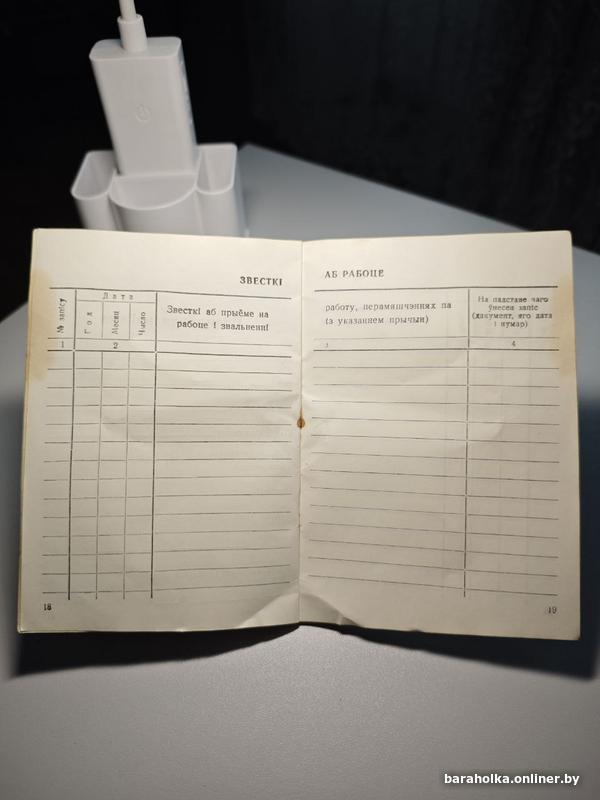 ЗВЕСТКІ
№ запісу
Дата
Год
Месяц
Число
Звесткі аб прыёме на
рабоце і звальненні
1
2
18
АБ РАБОЦЕ
работу, перамяшчэннях па
(з указаннем прычын)
На падставе чаго
ўнесен запіс
(дакумент, яго дата
і нумар)
3
4
19
baraholka.onliner.by